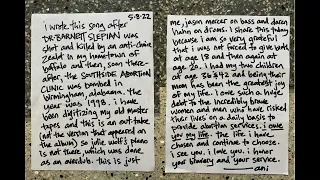 5-8-22
I wrote this song after
DR. BARNETT SLEPIAN was
shot and killed by an anti-choice
zealot in my hometown of
buffalo and then, soon there-
after, the SOUTHSIDE ABORTION
CLINIC was bombed in
birmingham, alabama. the
year was 1998. i have
been digitizing my old master
tapes and this is an out-take
(not the version that appeared on
the album) so julie wolf's piano
is not there which was done
as an overdub. this is just
me, jason mercer on bass and daren
hahn on drums. I share this today
because i am so very grateful
that i was not forced to give birth
at age 18 and then again at
age 20. i had my two children
at age 36 & 42 and being their
mom has been the greatest joy
of my life. i owe such a huge
debt to the incredibly brave
women and men who have risked
their lives on a daily basis to
provide abortion services. i owe
you my life. the life i have
chosen and continue to choose.
i see you. i love you. i honor
your bravery and your service.
ani